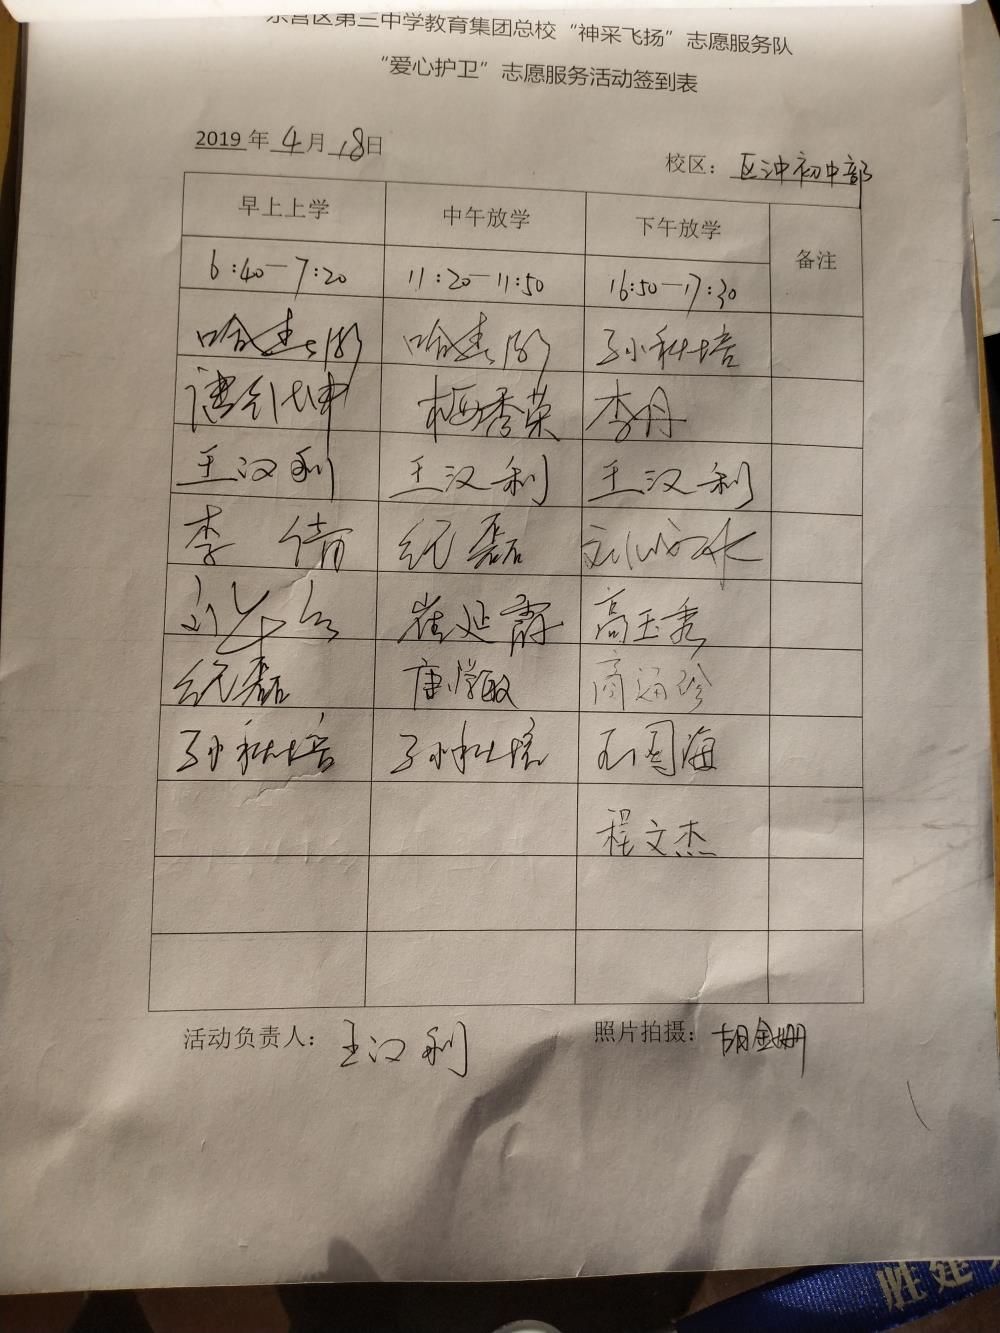 东营区第三中学教育集团总校“神采飞扬”志愿服务队
“爱心护卫”志愿服务活动签到表
2019年4月18日
校区：区沖初中部
早上上学 中午放学 下午放学 备注
6:40—7:20 11:20—11:50 16:50—17:30
孙秋培
梅秀荣 李丹
王汉利 王汉利 王汉利
李倩 纪磊
崔延霞 高玉秀
纪磊 唐学敏 商通珍
孙秋培 孙秋培 石国海
程文杰
活动负责人：王汉利 照片拍摄：胡金珊
胜建